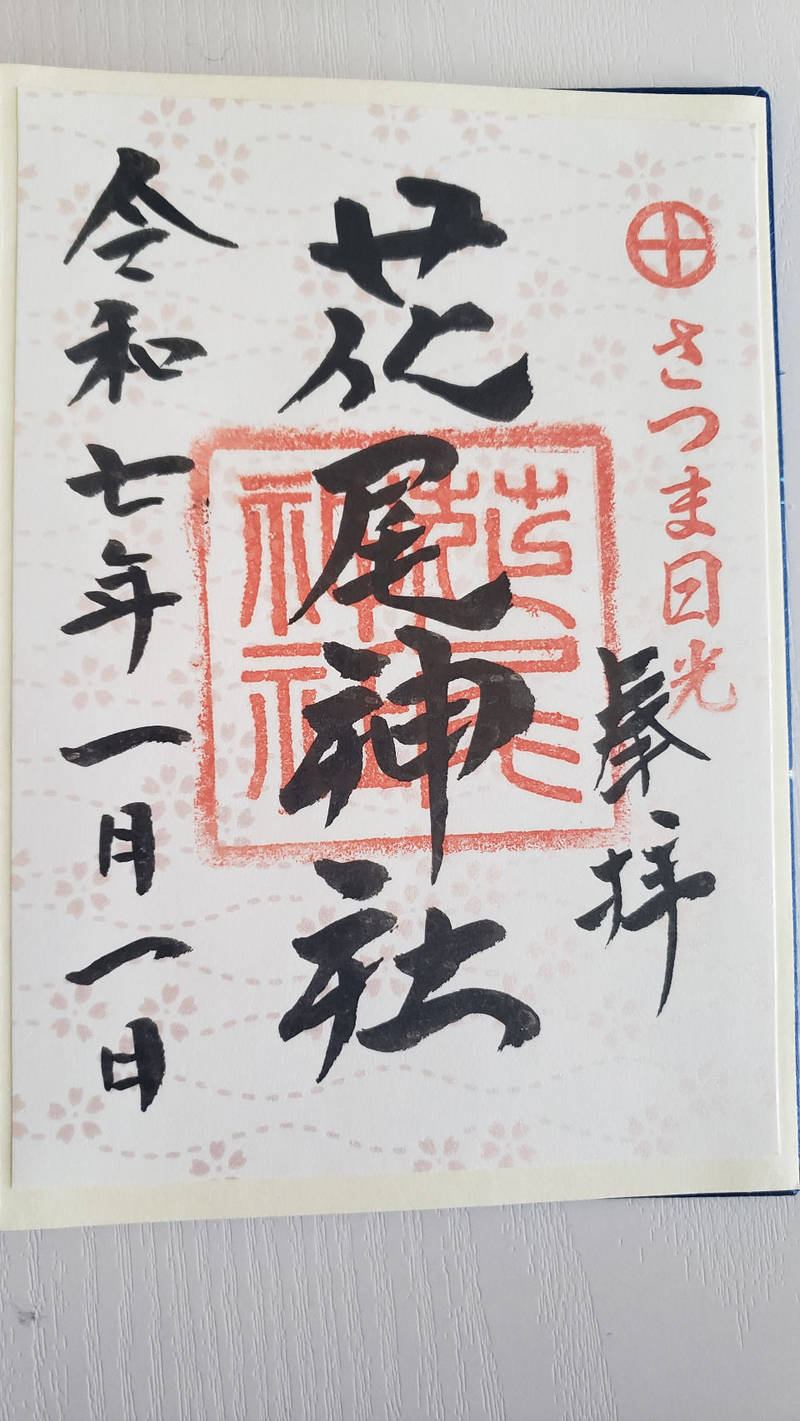 さつま日光
奉拝
花尾神社
花尾神社
令和七年一月一日